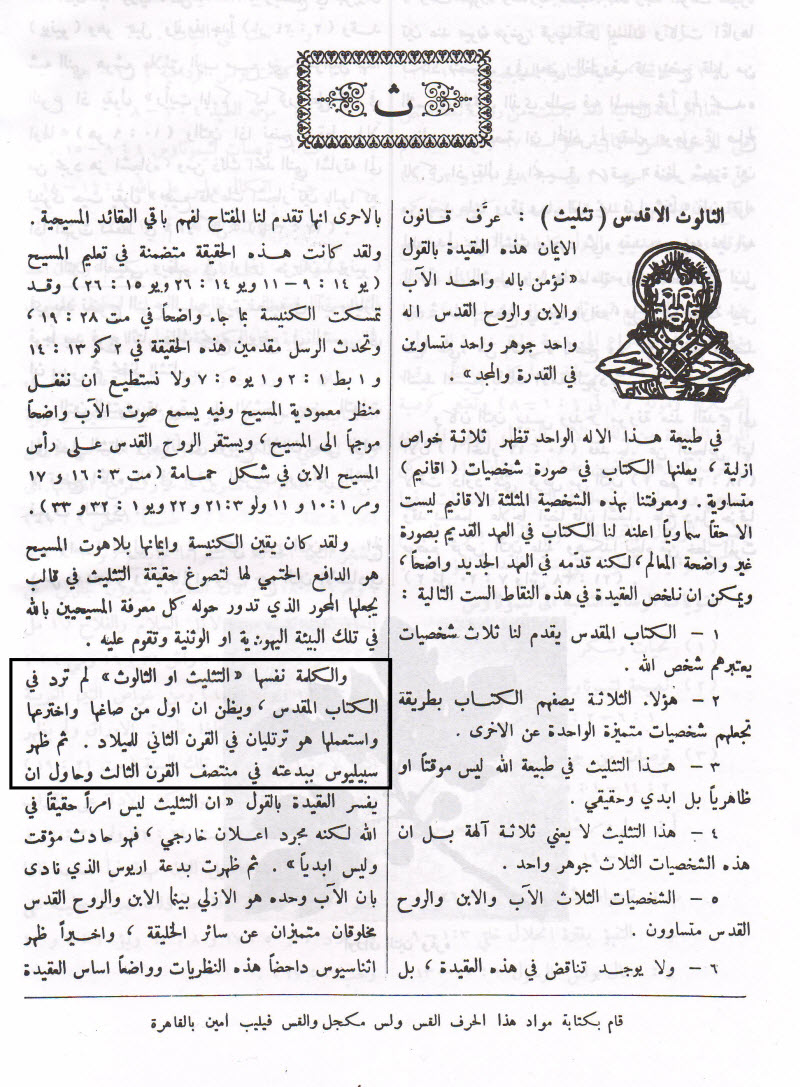 ث
الثالوث الاقدس ( تثليث ) : عرَّف قانون
الايمان هذه العقيدة بالقول
« نؤمن باله واحد الآب
والابن والروح القدس اله
واحد جوهر واحد متساوين
في القدرة والمجد » .
في طبيعة هذا الاله الواحد تظهر ثلاثة خواص
ازلية ، يعلنها الكتاب في صورة شخصيات ( اقانيم )
متساوية . ومعرفتنا بهذه الشخصية المثلثة الاقانيم ليست
الا حقاً سماوياً اعلنه لنا الكتاب في العهد القديم بصورة
غير واضحة المعالم ، لكنه قدمه في العهد الجديد واضحاً ،
ويمكن ان نلخص العقيدة في هذه النقاط الست التالية :
١ – الكتاب المقدس يقدم لنا ثلاث شخصيات
يعتبرهم شخص الله .
٢ – هؤلاء الثلاثة يصفهم الكتاب بطريقة
تجعلهم شخصيات متميزة الواحدة عن الاخرى .
٣ – هذا التثليث في طبيعة الله ليس موقتاً او
ظاهرياً بل ابدي وحقيقي .
٤ – هذا التثليث لا يعني ثلاثة آلهة بل ان
هذه الشخصيات الثلاث جوهر واحد .
٥ – الشخصيات الثلاث الآب والابن والروح
القدس متساوون .
٦ – ولا يوجد تناقض في هذه العقيدة ، بل
بالاحرى انها تقدم لنا المفتاح لفهم باقي العقائد المسيحية .
ولقد كانت هذه الحقيقة متضمنة في تعليم المسيح
( يو ١٤ : ٩ – ١١ ويو ١٤ : ٢٦ ويو ١٥ : ٢٦ ) وقد
تمسكت الكنيسة بما جاء واضحاً في مت ٢٨ : ١٩ ،
وتحدث الرسل مقدمين هذه الحقيقة في ٢ كو ١٣ : ١٤
و ١ بط ١ : ٢ و ١ يو ٥ : ٧ ولا نستطيع ان نغفل
منظر معمودية المسيح وفيه يسمع صوت الآب واضحاً
موجهاً الى المسيح ، ويستقر الروح القدس على رأس
المسيح الابن في شكل حمامة ( مت ٣ : ١٦ و ١٧
ومر ١ : ١٠ و ١١ ولو ٣ : ٢١ و ٢٢ ويو ١ : ٣٢ و ٣٣ ) .
ولقد كان يقين الكنيسة وايمانها بلاهوت المسيح
هو الدافع الحتمي لها لتصوغ حقيقة التثليث في قالب
يجعلها المحور الذي تدور حوله كل معرفة المسيحيين بالله
في تلك البيئة اليهودية او الوثنية وتقوم عليه .
والكلمة نفسها « التثليث او الثالوث » لم ترد في
الكتاب المقدس ، ويظن ان اول من صاغها واخترعها
واستعملها هو ترتليان في القرن الثاني للميلاد . ثم ظهر
سبيليوس ببدعته في منتصف القرن الثالث وحاول ان
يفسر العقيدة بالقول « ان التثليث ليس امراً حقيقاً في
الله لكنه مجرد اعلان خارجي ، فهو حادث مؤقت
وليس ابدياً » . ثم ظهرت بدعة اريوس الذي نادى
بان الآب وحده هو الازلي بينما الابن والروح القدس
مخلوقان متميزان عن سائر الخليقة ، واخيراً ظهر
اثناسيوس داحضاً هذه النظريات وواضعاً اساس العقيدة
قام بكتابة مواد هذا الحرف القس ولس مكجل والقس فيليب امين بالقاهرة